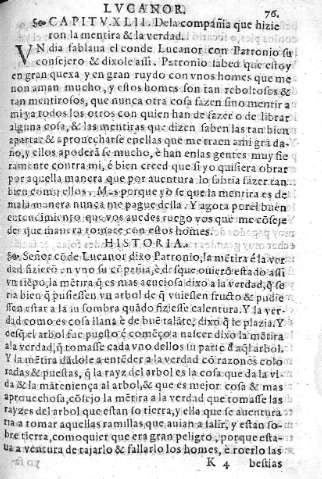 LVCANOR. 76.
CAPITV. XLII. Dela compañia que hizie
ron la mentira & la verdad.
VN dia fablaua el conde Lucanor con Patronio su
consejero & dixole assi. Patronio sabed que estoy
en gran quexa y en gran ruydo con vnos homes que me
non aman mucho, y estos homes son tan reboltosos &
tan mentirosos, que nunca otra cosa fazen sino mentir a
mi ya todos los otros con quien han de fazer o de librar
alguna cosa, & las mentiras que dizen saben las tan bien
apartar & aprouecharse enellas que me traen ami grã da-
ño, y ellos apoderã se mucho, è han enlas gentes muy fie
ramente contra mi, è bien creed que si yo quisiera obrar
por aquella manera que por auentura lo sabria fazer tan
bien como ellos. Mas porque yo se que la mentira es de
mala manera nunca me pague della. Y agora por el buen
entendimiento que vos auedes ruego vos que me cõseje
des que manera tomare con estos homes.
HISTORIA.
Señor cõde Lucanor dixo Patronio, la mẽtira è la ver
dad fizierõ en vno su cõpañia, è desque ouierõ estado assi
vn tiẽpo, la mẽtira q̃ es mas acuciosa dixo a la verdad, q̃ se
ria bien q̃ pusiessen vn arbol de q̃ vuiessen fructo & pudie
ssen estar a la su sombra quãdo fiziesse calentura. Y la ver
dad como es cosa llana è de buẽ talãte, dixo q̃ le plazia. Y
desq̃ el arbol fue puesto è começo a nacer dixo la mẽtira
ala verdad, q̃ tomasse cada vno dellos su parte d̃ aq̃l arbol.
Y la mẽtira dãdole a entẽder a la verdad cõ razones colo
radas & puestas, q̃ la rayz del arbol es la cosa que da la vi-
da & la mãteniença al arbol, & que es mejor cosa & mas
aprouechosa, cõsejo la mẽtira a la verdad que tomasse las
rayzes del arbol que estan so tierra, y ella que se auentura
na a tomar aquellas ramillas que auian a salir, y estan so-
bre tierra, comoquier que era gran peligro, porque esta-
ua a ventura de tajarlo & fallarlo los homes, è roerlo las
K 4 bestias